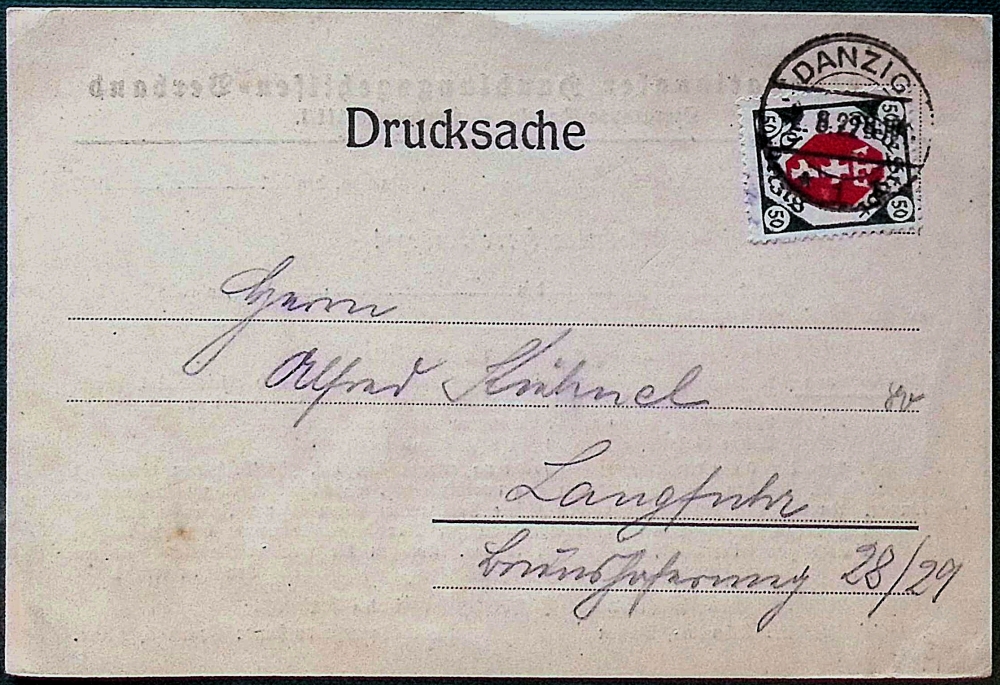 DANZIG
Drucksache
50
50
50
50
Herrn
Alfred Kühnel
Langfuhr
Brunshöferweg 28/29